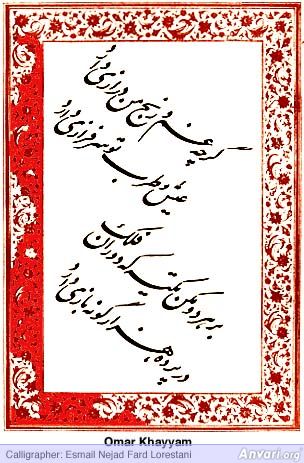 گرچه غم و رنج من درازی دارد
عیش و طرب تو سرفرازی دارد
بر هر دو مکن تکیه که دوران فلک
در پرده هزار گونه بازی دارد
Omar Khayyam
Calligrapher: Esmail Nejad Fard Lorestani
Anvari.org